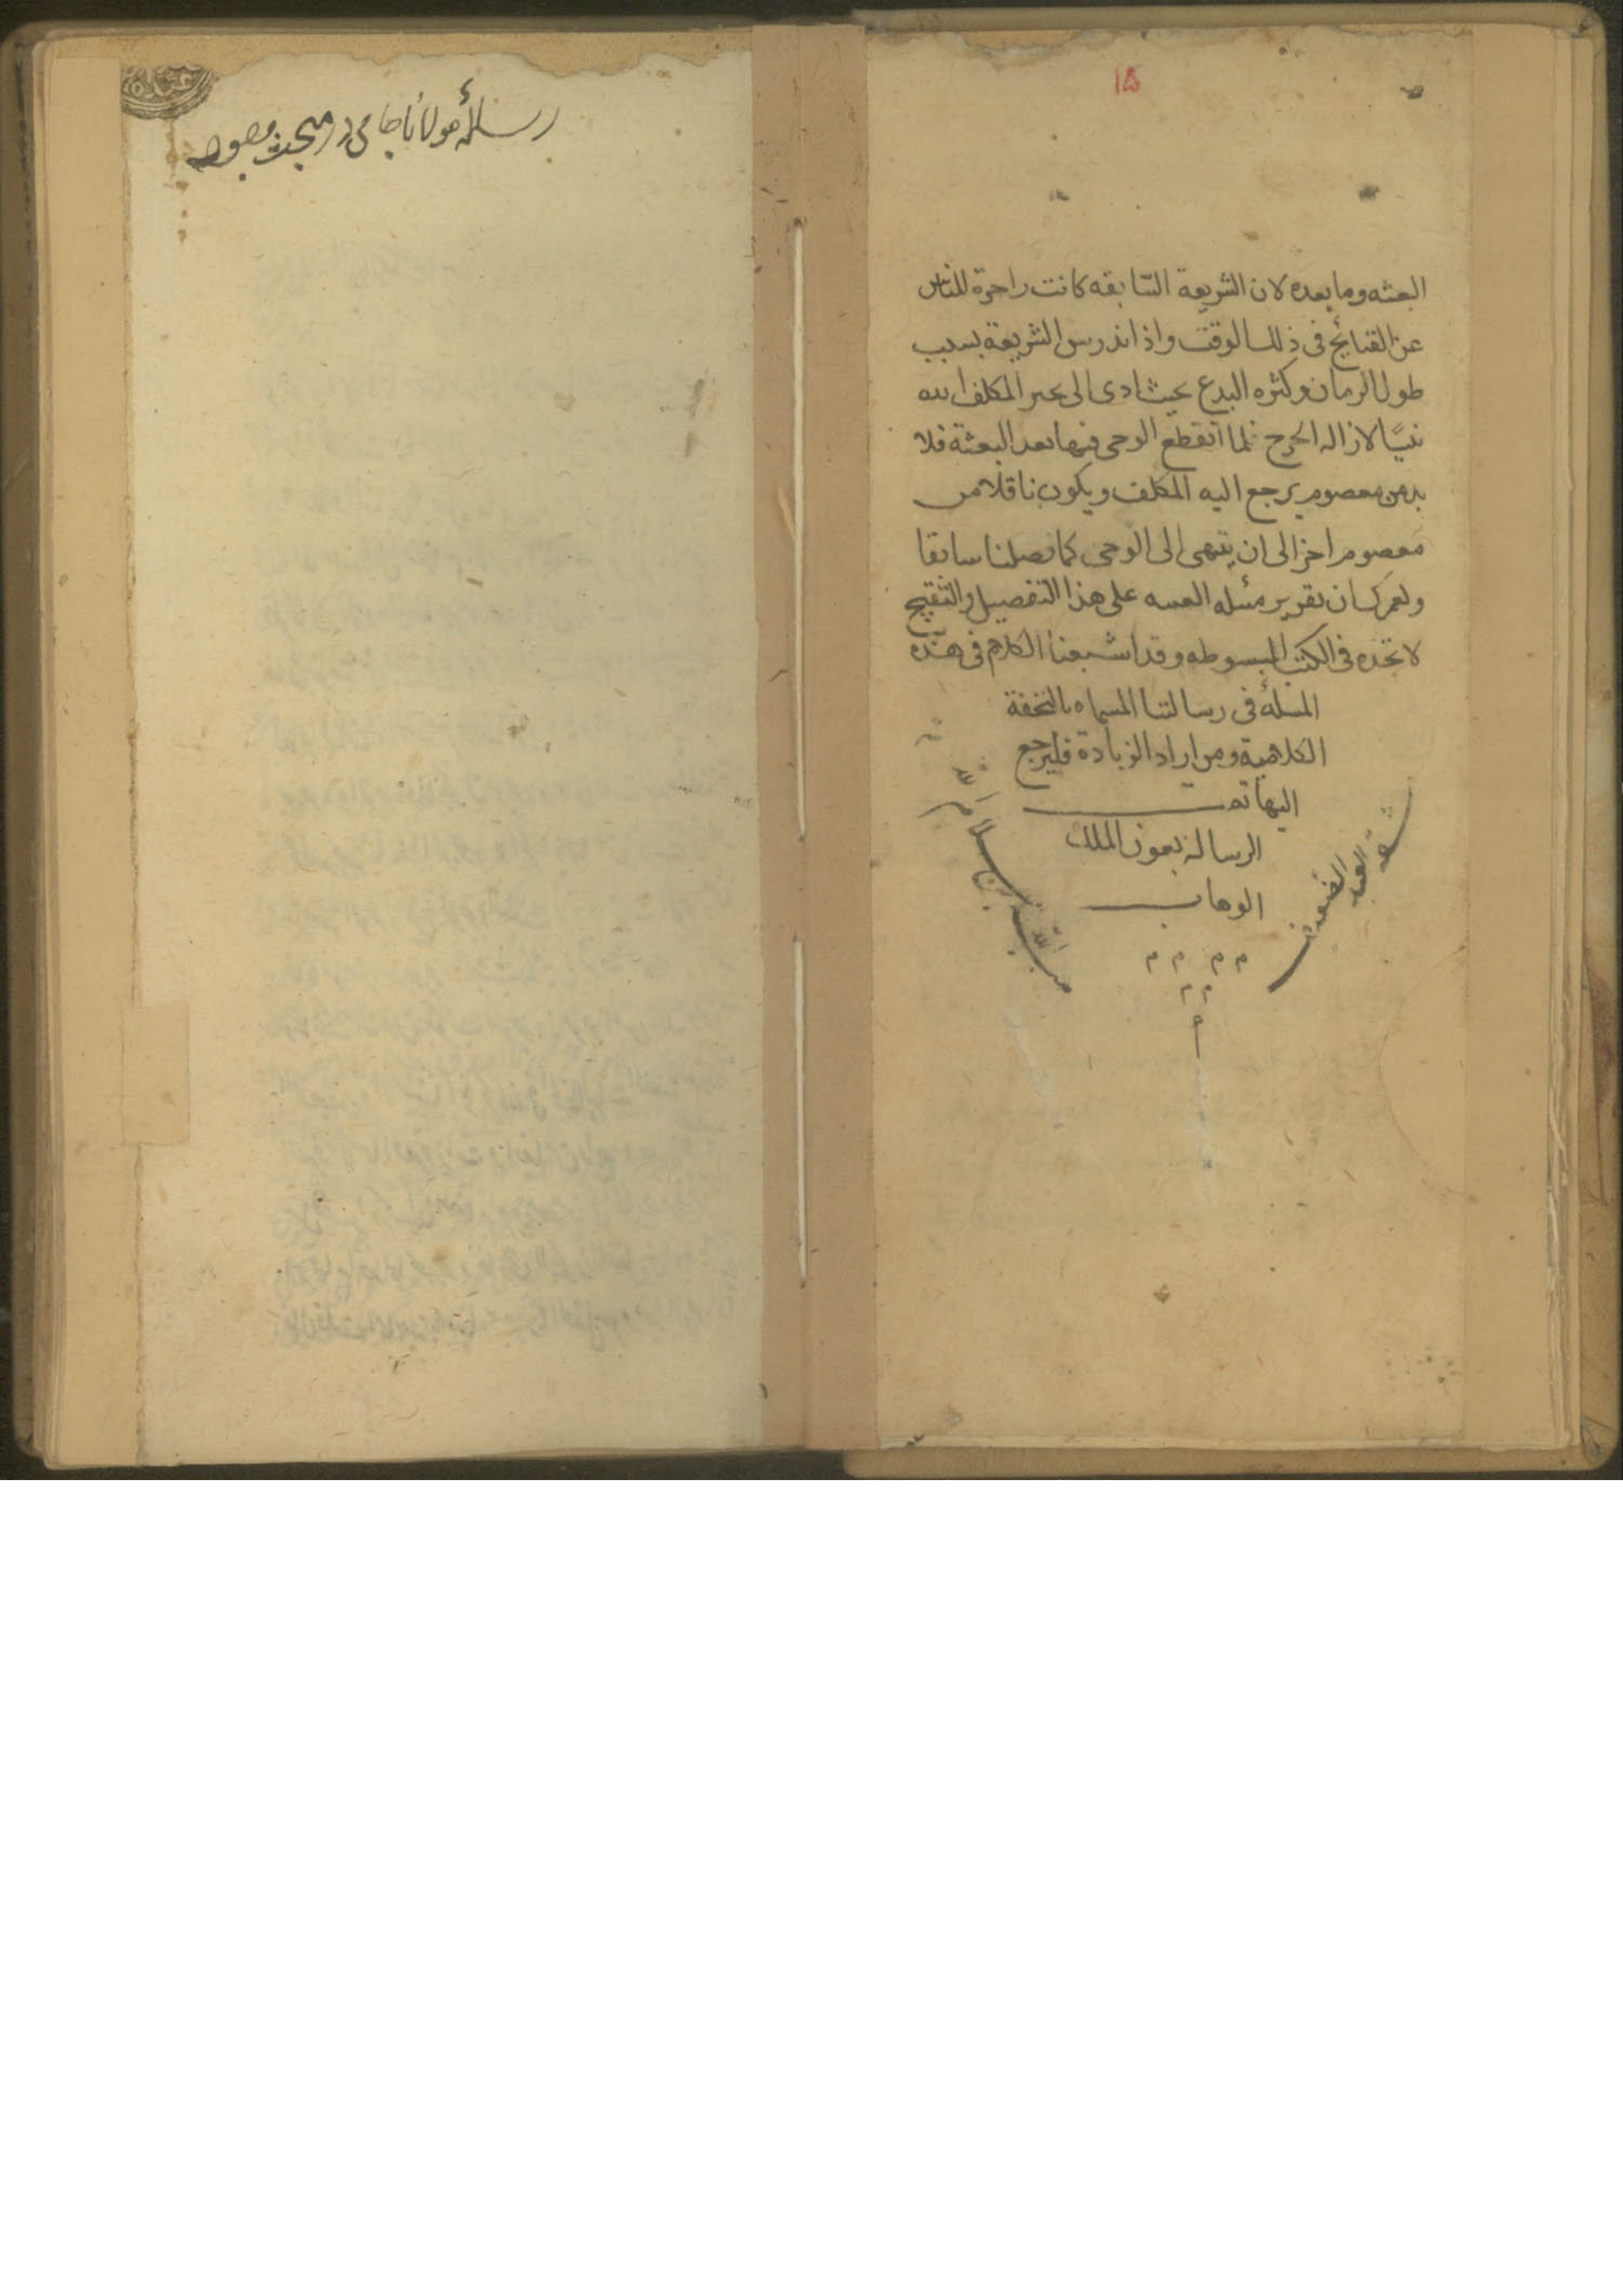 ١۵
البعثه وما بعده لان الشريعة السّابقه كانت زاجرة للناس
عن القبائح فى ذلك الوقت واذا اندرس الشريعة بسبب
طول الزمان وكثره البدع بحيث ادى الى تحير المكلف
نبيّا لازاله الحرج فلما انقطع الوحى فيها بعد البعثة فلا
بد من معصوم يرجع اليه المكلف ويكون ناقلا من
معصوم اخر الى ان ينتهى الى الوحى كما فصلنا سابقا
ولعمرك ان تقرير مسئله على هذا التفصيل والتنقيح
لا تجده فى الكتب المبسوطه وقد اشبعنا الكلام فى هذه
المسئلة فى رسالتنا المسماه بالتحفة
الكلامية ومن اراد الزيادة فليرجع
اليها تمت
الرسالة بعون الملك
الوهاب
م م م م
م م
م
العبد الضعيف
رسالهٔ مولانا جامى در مبحث